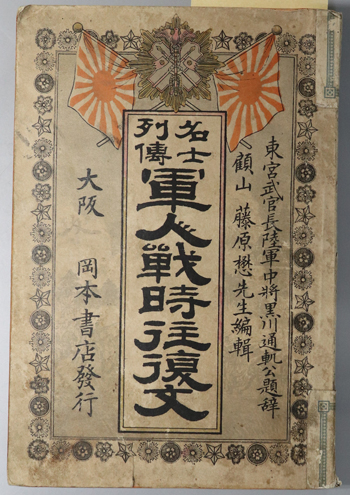 東宮武官長陸軍中将黒川通軌公題辞
顧山 藤原懋先生編輯
名士
列傳
軍人戦時往復文
大阪 岡本書店發行